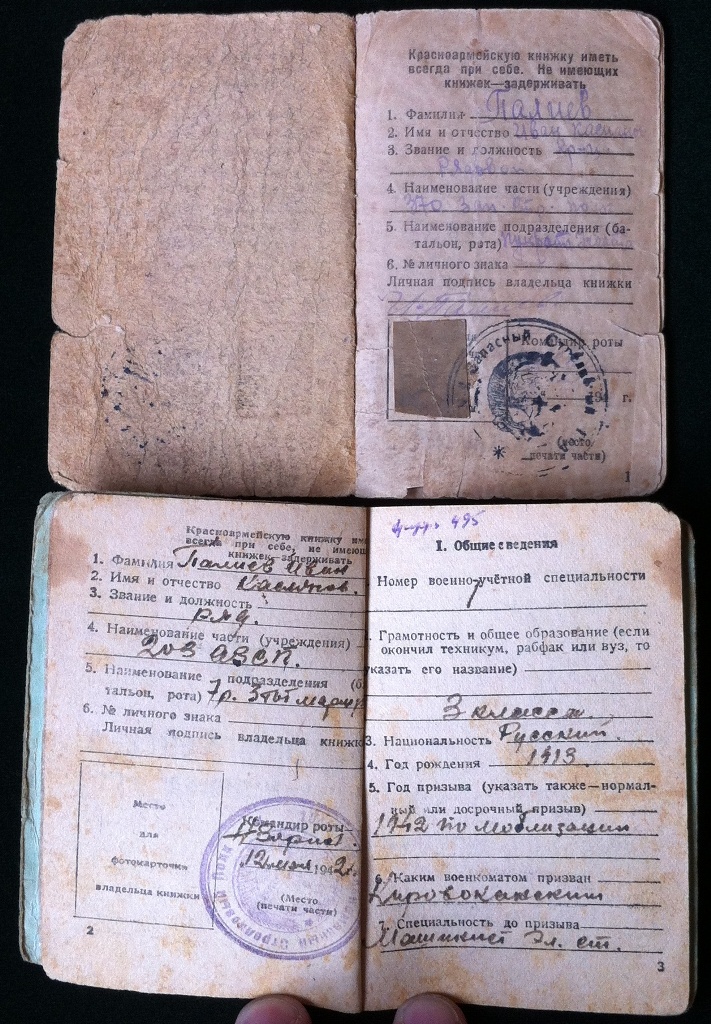 Красноармейскую книжку иметь
всегда при себе. Не имеющих
книжек—задерживать
1. Фамилия Палиев
2. Имя и отчество Иван
3. Звание и должность
Рядовой
4. Наименование части (учреждения)
370 Зап. Стр. полк
5. Наименование подразделения (ба-
тальон, рота)
6. № личного знака
Личная подпись владельца книжки
Командир роты
194 г.
(место
печати части)
Запасный Стрелковый
1
Красноармейскую книжку име
всегда при себе, не имеющ
книжек—задерживать
1. Фамилия Палиев Иван
2. Имя и отчество Касьянов.
3. Звание и должность
р-мд.
4. Наименование части (учреждения)
203 АЗСП.
5. Наименование подразделения (б
тальон, рота) 7р.
6. № личного знака
Личная подпись владельца книжк
Место
для
фотокарточки
владельца книжки
Командир роты
12 мая 1942 г.
(Место
печати части)
Стрелковый Полк
2
495
I. Общие сведения
Номер военно-учётной специальности
Грамотность и общее образование (если
окончил техникум, рабфак или вуз, то
указать его название)
3 класса
3. Национальность Русский.
4. Год рождения 1913
5. Год призыва (указать также—нормал-
ный или досрочный призыв)
1942 по мобилизации
6. Каким военкоматом призван
Кировоканский
7. Специальность до призыва
Машинист Эл. ст.
3